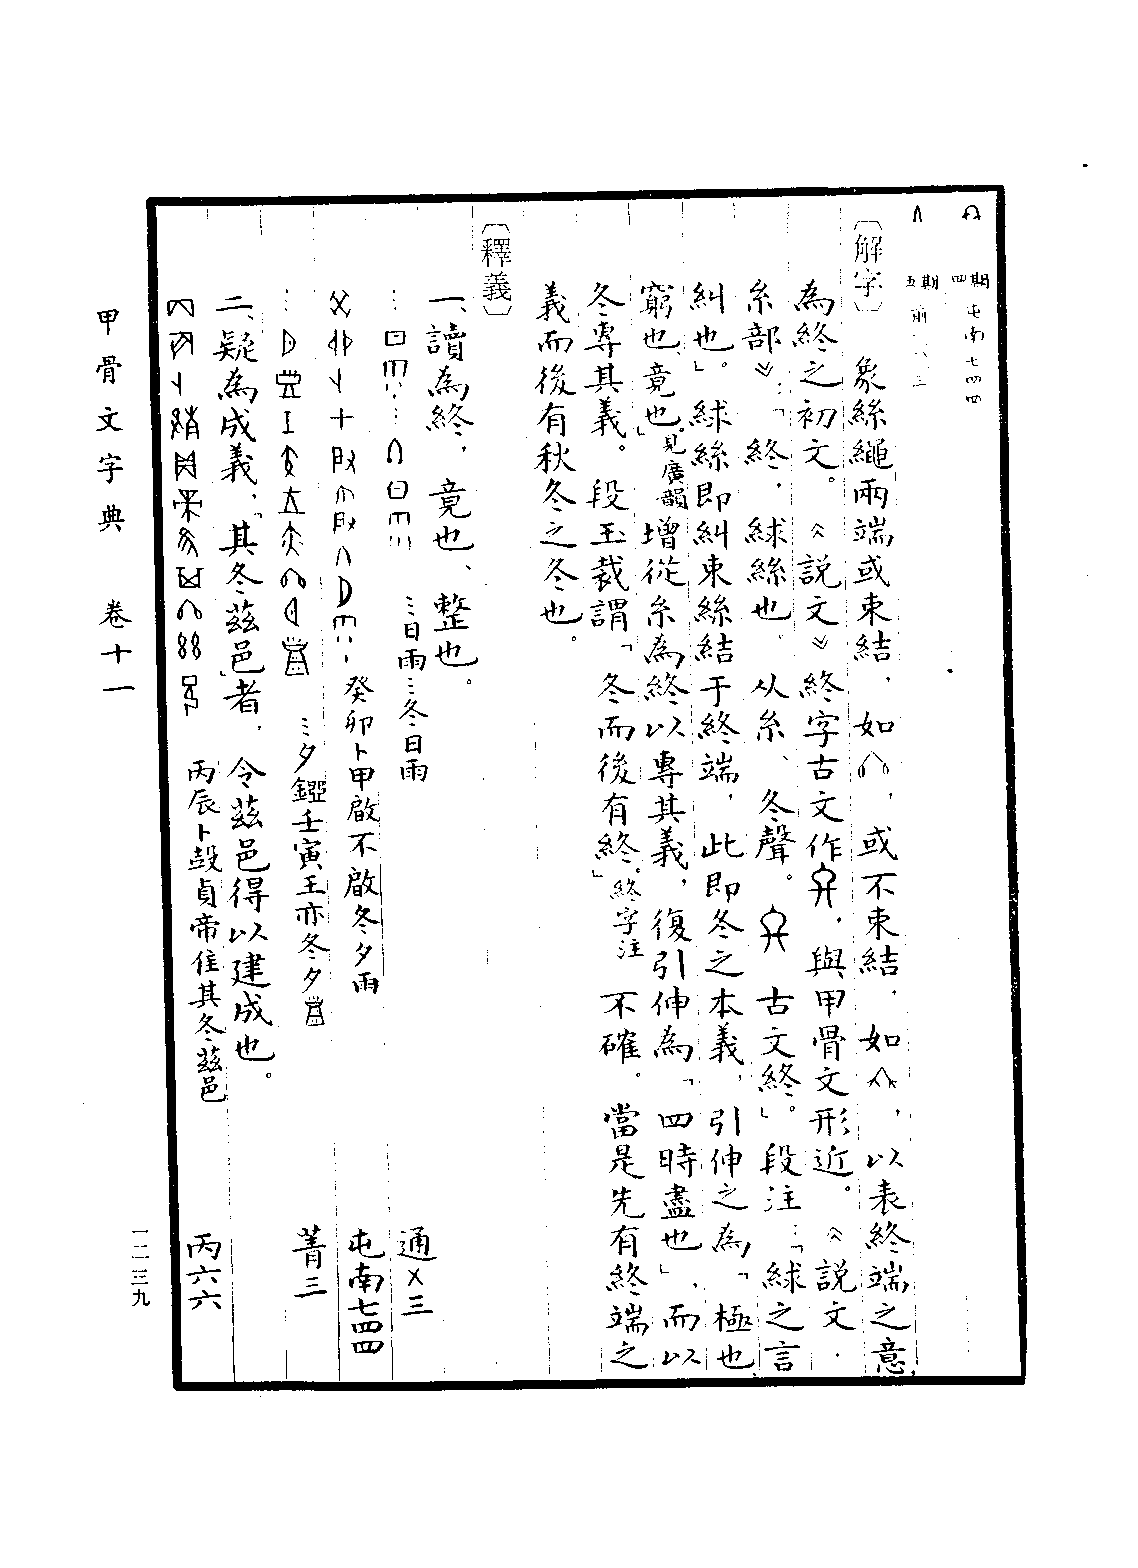 四期 屯南七四四
五期 前
〔解字〕象絲繩兩端或束結，如，或不束結，如，以表終端之意
為終之初文。《說文》終字古文作，與甲骨文形近。《說文·
糸部》：「終，絿絲也，从糸、冬聲。古文終」。段注：「絿之言
糾也」。絿絲即糾束絲結于終端，此即冬之本義，引伸之為「極也
窮也，竟也」見廣韻，增從糸為終以專其義，復引伸為「四時盡也」，而以
冬專其義。段玉裁謂「冬而後有終」終字注，不確。當是先有終端之
義而後有秋冬之冬也。
〔釋義〕
一、讀為終，竟也、整也。
…日雨…冬日雨 通X三
癸卯卜甲啟不啟冬夕雨 屯南七四四
…夕壬寅王亦冬夕 菁三
二、疑為成義，「其冬茲邑」者，令茲邑得以建成也。
丙辰卜㱿貞帝隹其冬茲邑 丙六六
甲骨文字典 卷十一
一二三九